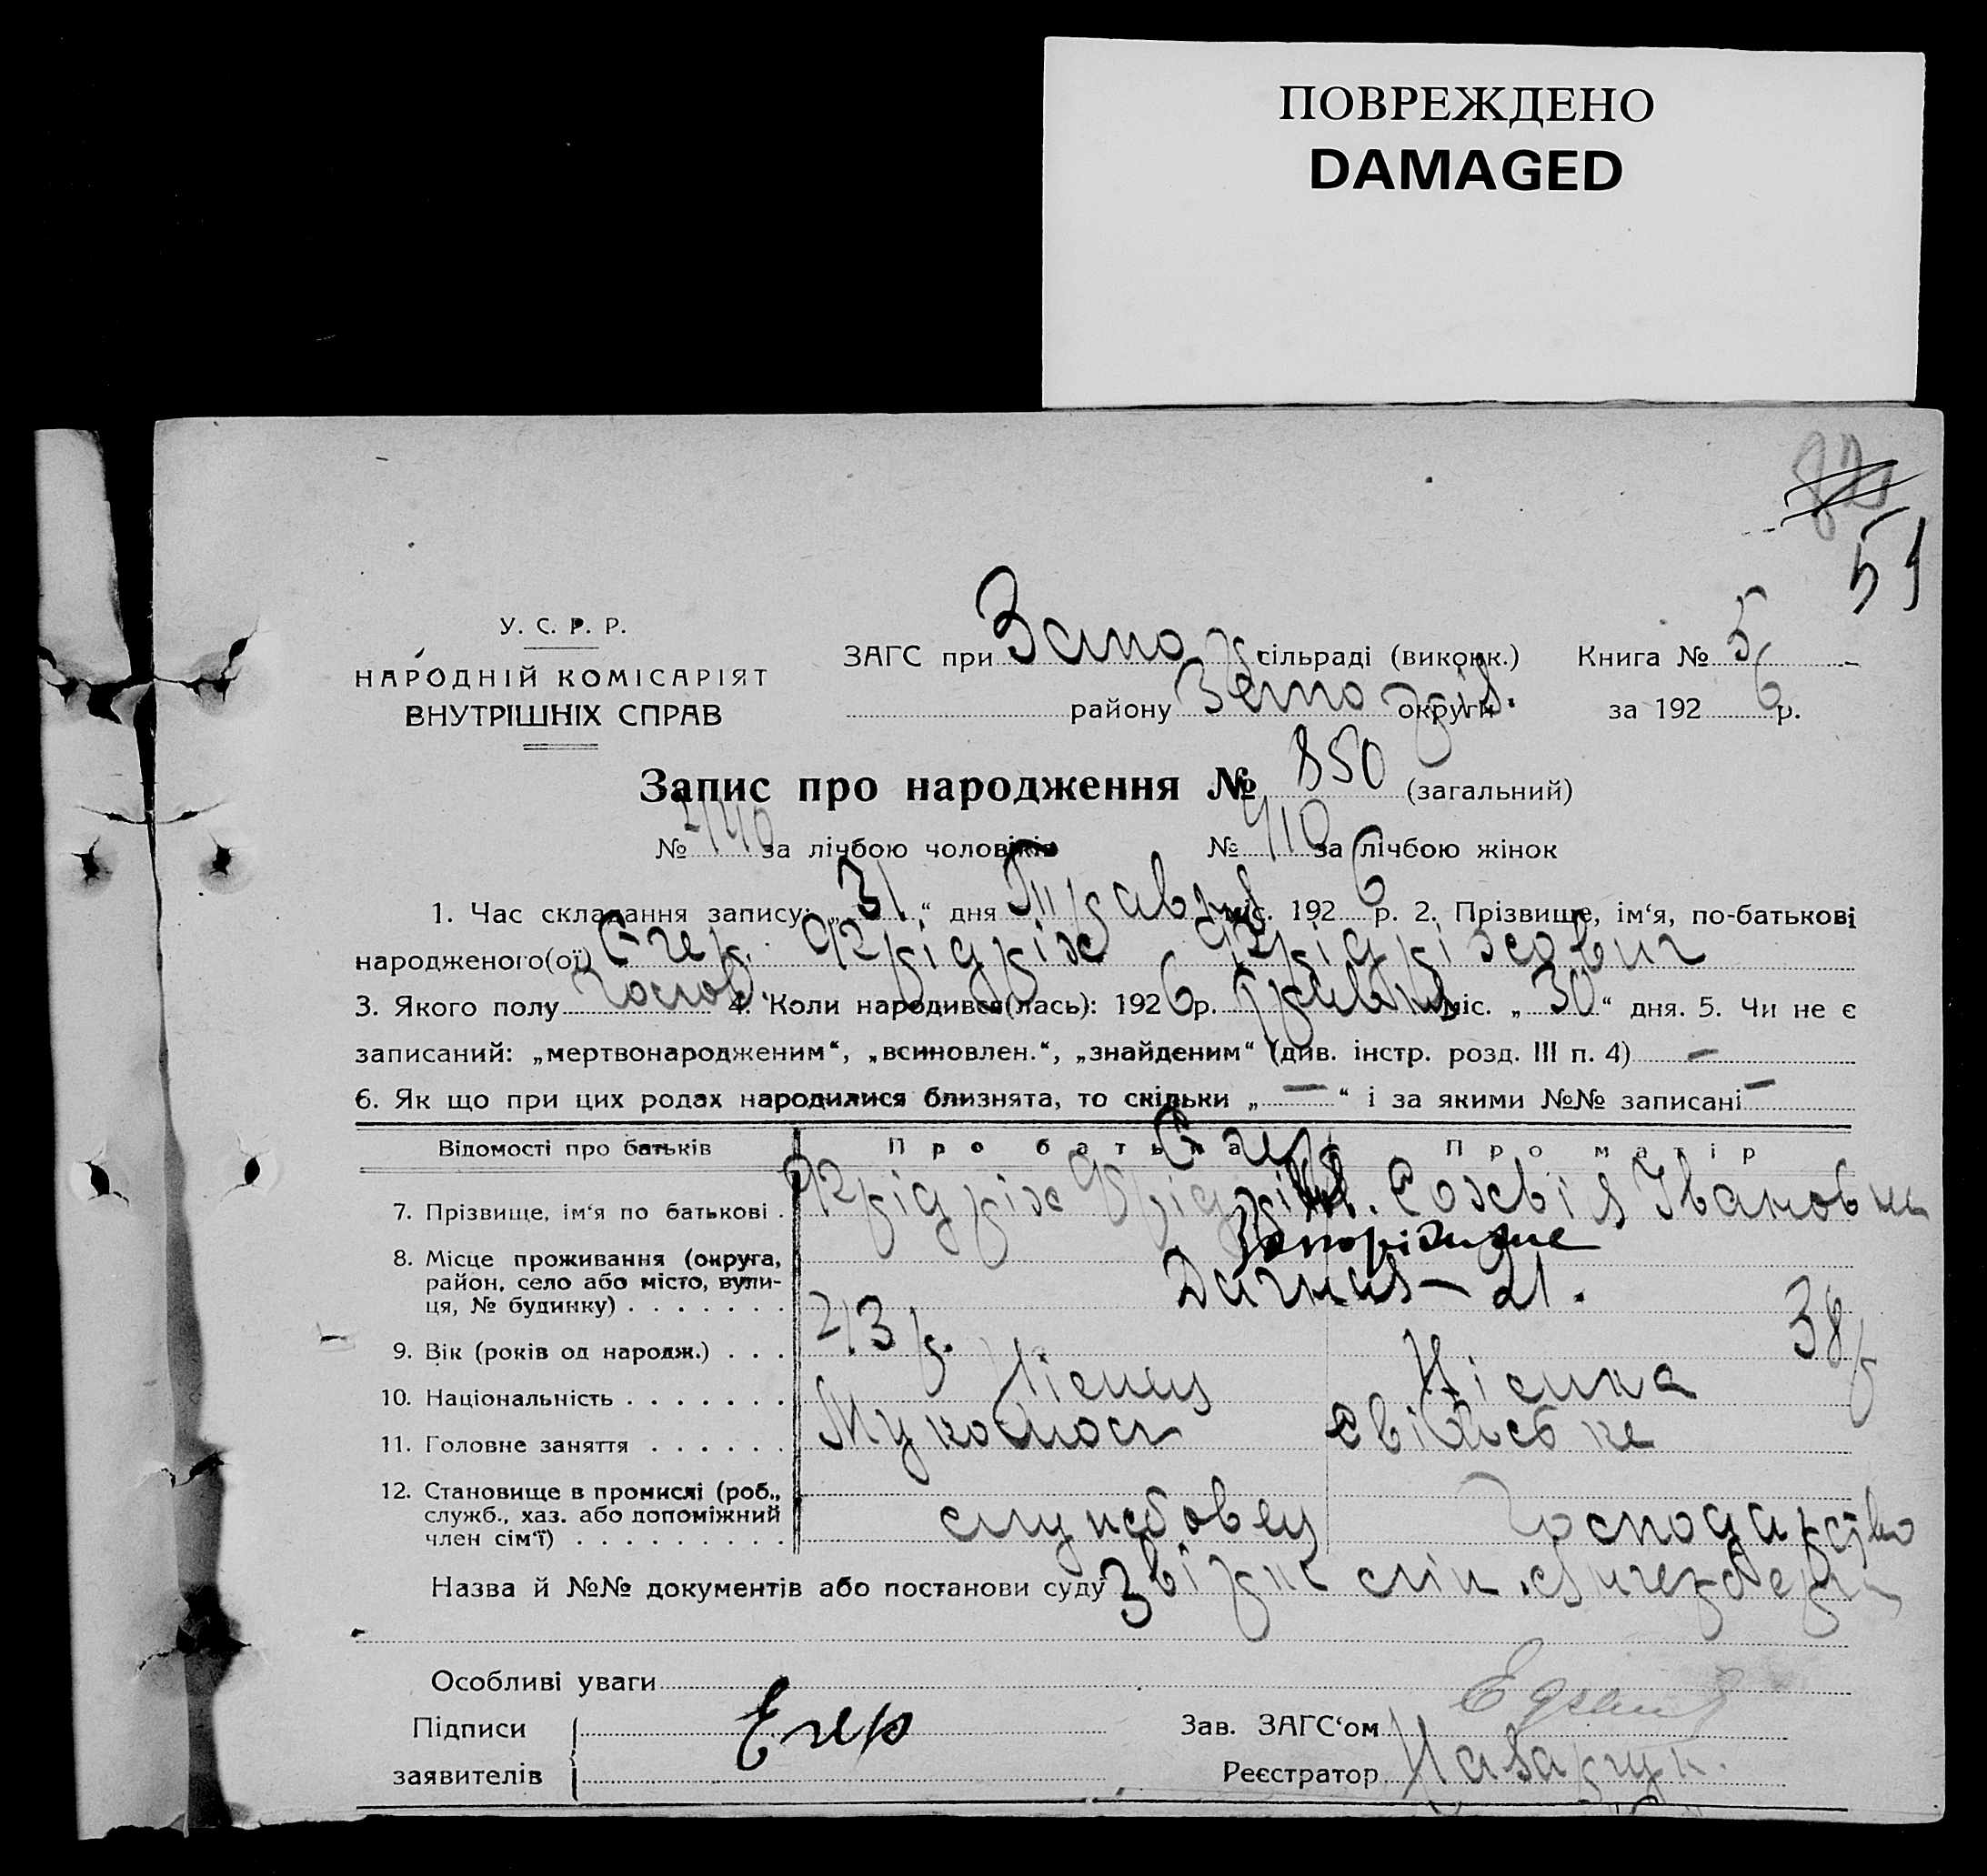 ПОВРЕЖДЕНО
DAMAGED
51
У. С. Р. Р.
НАРОДНІЙ КОМІСАРІЯТ
ВНУТРІШНІХ СПРАВ
ЗАГС при Запо сільраді (виконк.) Книга № 5
району Запо округи за 1926 р.
Запис про народження № 850 (загальний)
№ 440 за лічбою чоловіків № 410 за лічбою жінок
1. Час складання запису: „31“ дня Травня міс. 1926 р. 2. Прізвище, ім‘я, по-батькові
народженого(ої) Єгер Фрідріх Фрідріхович
3. Якого полу чолов. 4. Коли народився(лась): 1926 р. Травня міс. „30“ дня. 5. Чи не є
записаний: „мертвонародженим“, „всиновлен.“, „знайденим“ (див. інстр. розд. III п. 4) —
6. Як що при цих родах народилися близнята, то скільки „—“ і за якими №№ записані —
Відомості про батьків Про батька Про матір
Єгер
7. Прізвище, ім‘я по батькові . Фрідріх Фрідріхов. Софія Івановна
8. Місце проживання (округа, Запоріжжя
район, село або місто, вули-
ця, № будинку) . . . . . . . — 21.
9. Вік (років од народж.) . . . 43 р. 38 р
10. Національність . . . . . . . Німець Німка
11. Головне заняття . . . . . .
12. Становище в промислі (роб.,
служб., хаз. або допоміжний службовец Господарство
член сім‘ї) . . . . . . . . .
Назва й №№ документів або постанови суду
Особливі уваги
Підписи Егер Зав. ЗАГС‘ом
заявителів Реєстратор